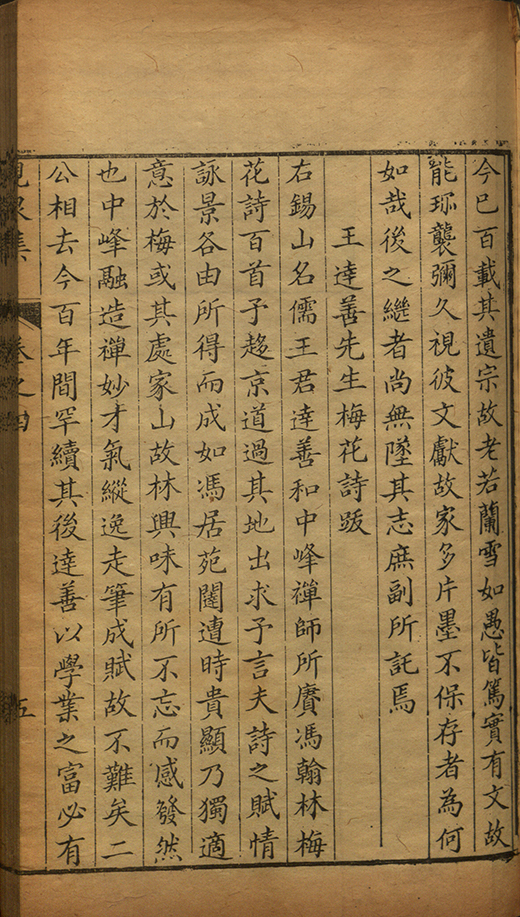 今已百載其遺宗故老若蘭雪如愚皆篤實有文故
能珎襲彌久視彼文獻故家多片墨不保存者為何
如哉後之繼者尚無墜其志庶副所託焉
王達善先生梅花詩跋
右錫山名儒王君達善和中峰禪師所賡馮翰林梅
花詩百首予趍京道過其地出求予言夫詩之賦情
詠景各由所得而成如馮居苑閣遭時貴顯乃獨適
意於梅或其處家山故林興味有所不忘而感發然
也中峰融造禪妙才氣縱逸走筆成賦故不難矣二
公相去今百年間罕續其後達善以學業之富必有
卷之四
五